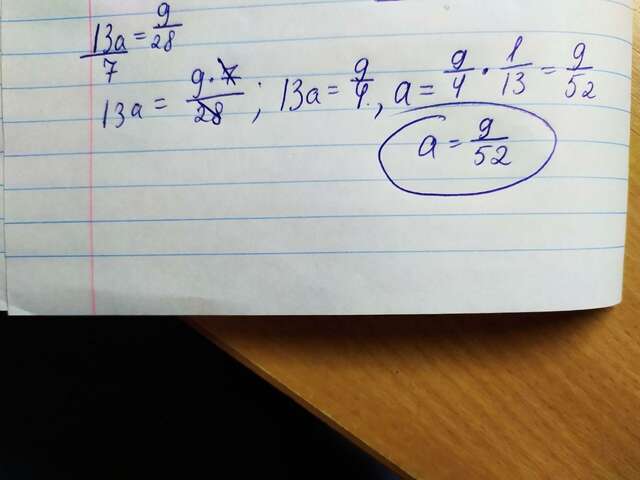 13a/7 = 9/28
13a = 9·7/28; 13a = 9/4, a = 9/4 · 1/13 = 9/52
a = 9/52